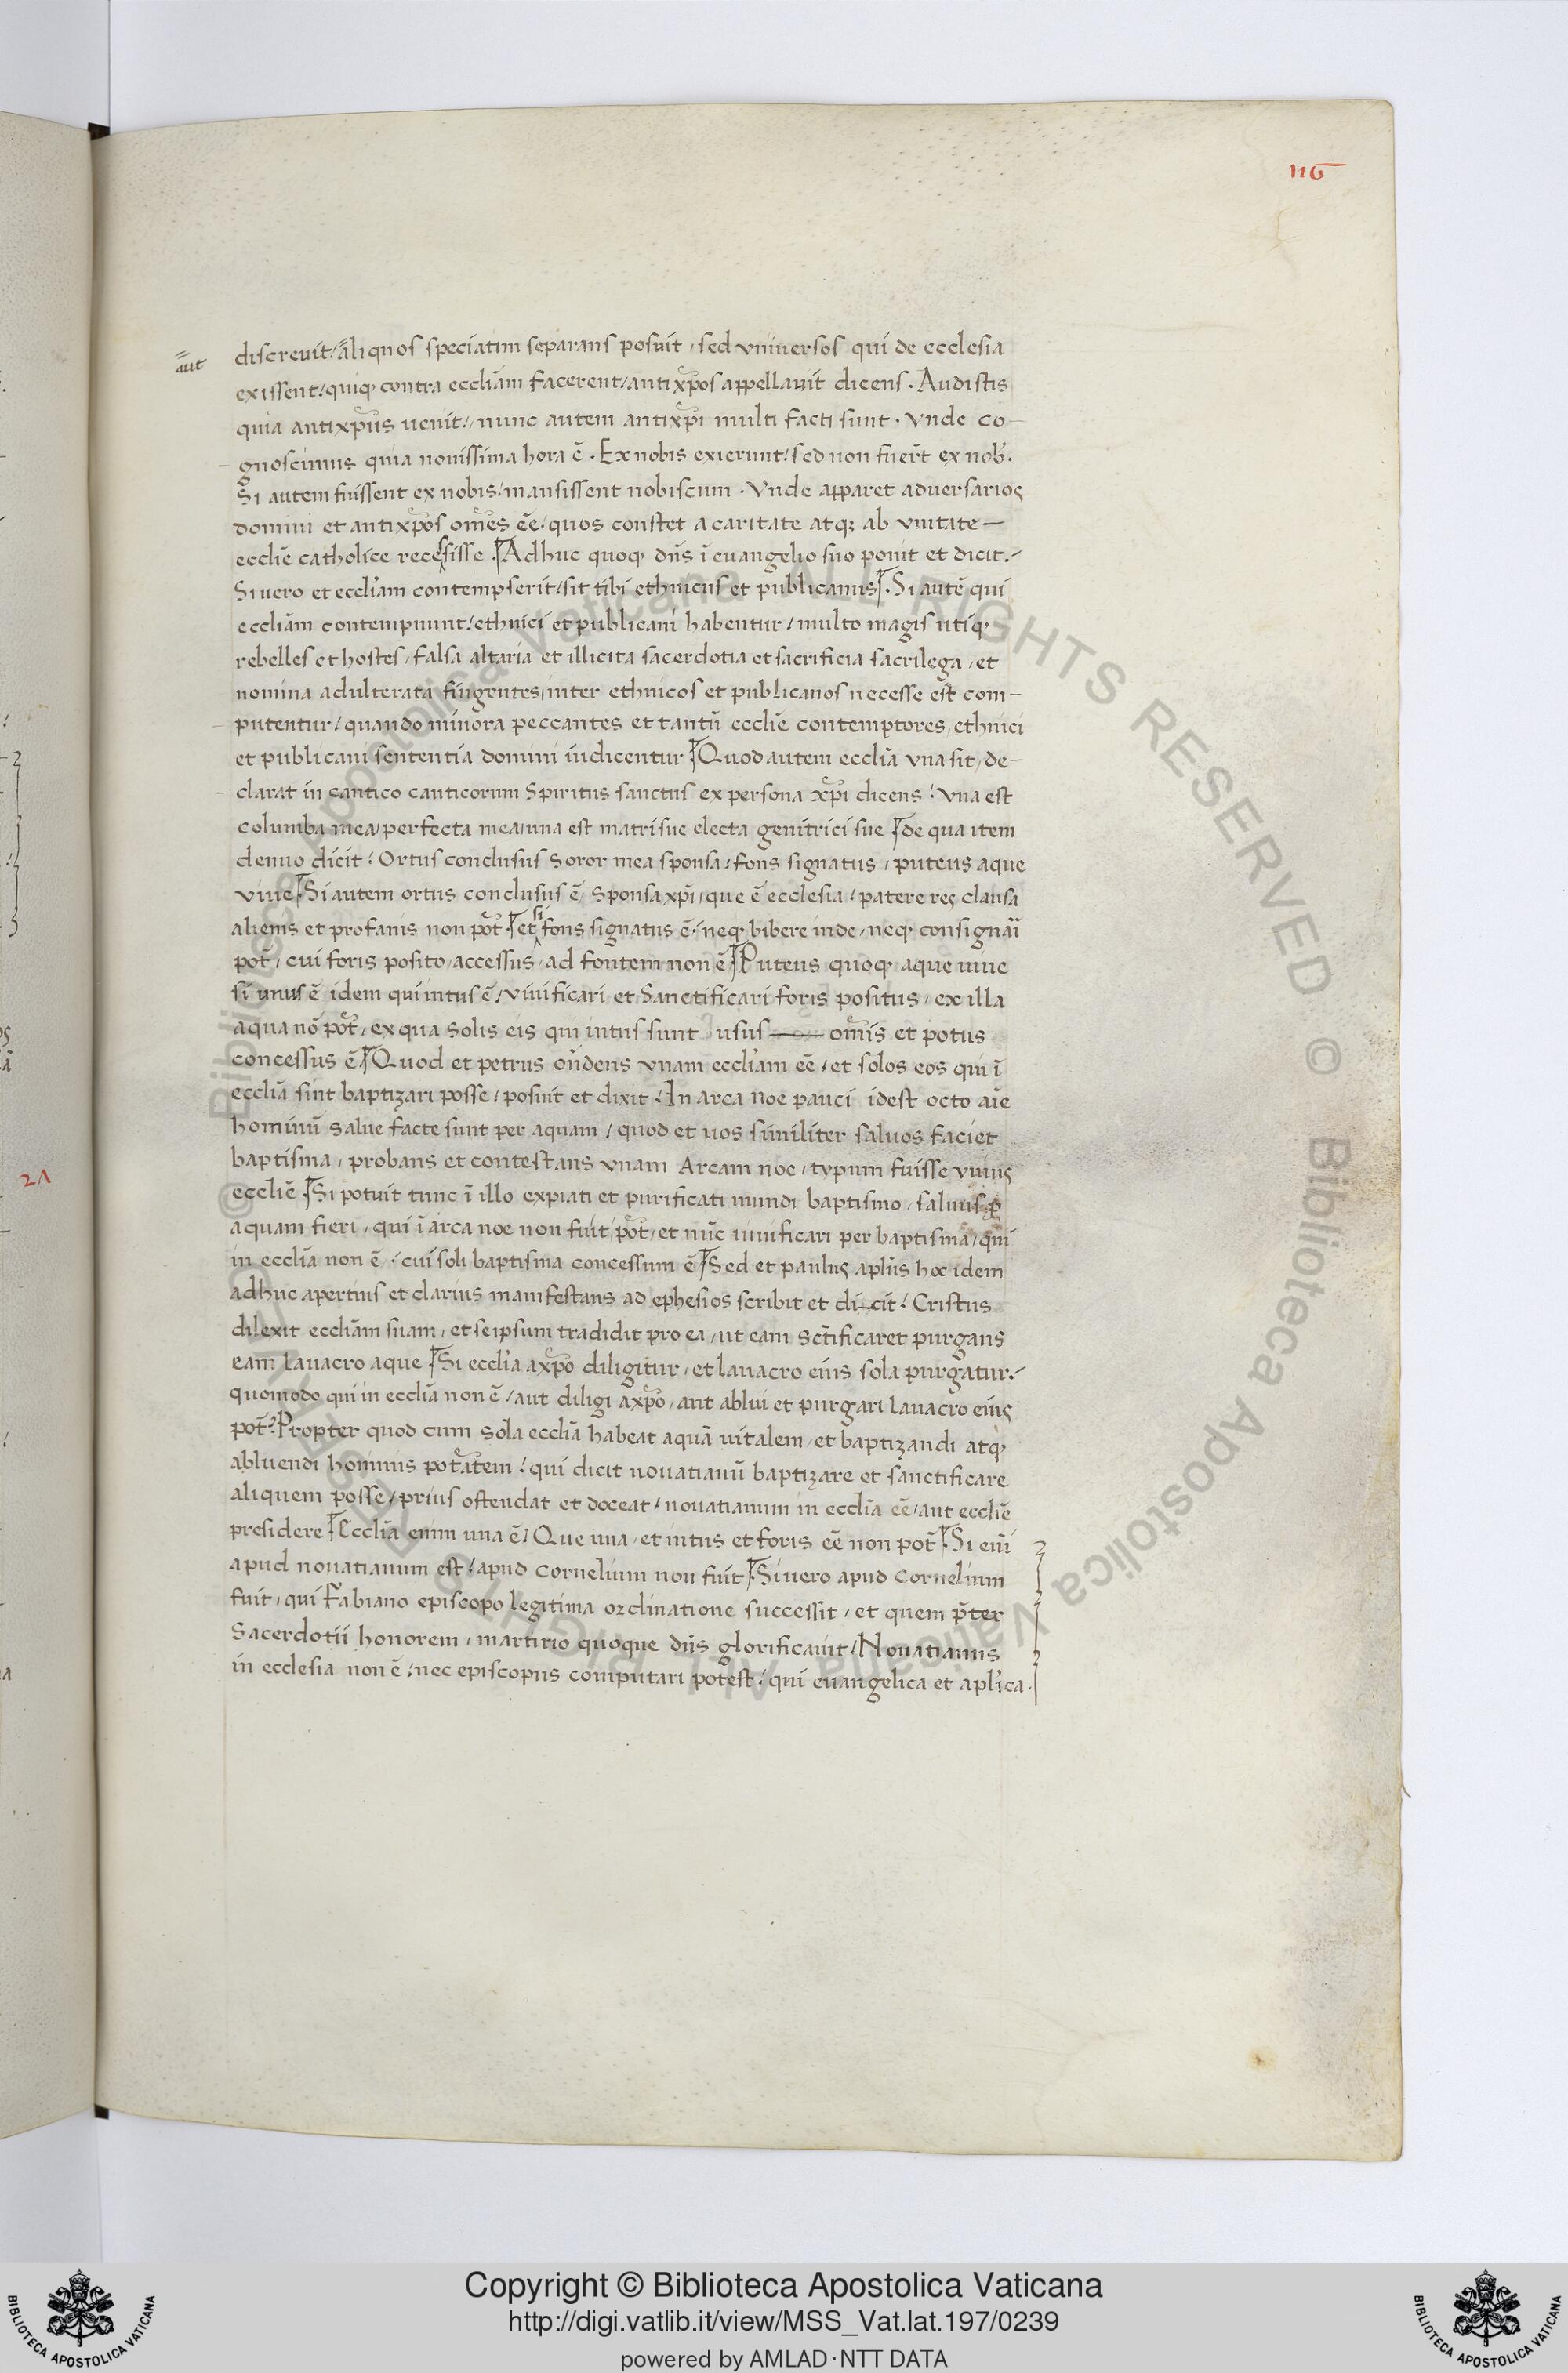 116
aut̄ discreuit / aliquos speciatim separans posuit, sed vniuersos qui de ecclesia
exissent / quiqꝫ contra eccliām facerent / antixp̄os appellauit dicens. Audistis
quia antixp̄us uenit / nunc autem antixp̄i multi facti sunt. Vnde co-
gnoscimus quia nouissima hora ē. Ex nobis exierunt / sed non fuer̄t ex nob̄.
Si autem fuissent ex nobis / mansissent nobiscum. Vnde apparet aduersarios
domini et antixp̄os om̄es ēe / quos constet a caritate atqꝫ ab vnitate
ecclīe catholice recessisse. Adhuc quoqꝫ dn̄s ī euangelio suo ponit et dicit /
Si uero et eccliam contempserit / sit tibi ethnicus et publicanus. Si autē qui
eccliām contempnunt / ethnici et publicani habentur / multo magis utiqꝫ
rebelles et hostes, falsa altaria et illicita sacerdotia et sacrificia sacrilega, et
nomina adulterata fingentes, inter ethnicos et publicanos necesse est com-
putentur / quando minora peccantes et tantū ecclīe contemptores, ethnici
et publicani sententia domini iudicentur. Quod autem eccliā vna sit, de-
clarat in cantico canticorum Spiritus sanctus ex persona xp̄i dicens / vna est
columba mea, perfecta mea, una est matri sue electa genitrici sue. de qua item
denuo dicit / Ortus conclusus soror mea sponsa / fons signatus, puteus aque
viue. Si autem ortus conclusus ē sponsa xp̄i, que ē ecclesia / patere res clausa
alienis et profanis non pōt. et si fons signatus ē / neqꝫ bibere inde, neqꝫ consignāi
pōt, cui foris posito, accessus, ad fontem non ē. Puteus quoqꝫ aque uiue
si unus ē idem qui intus ē / viuificari et Sanctificari foris positus, ex illa
aqua nō pōt, ex qua solis eis qui intus sunt usus — om̄is et potus
concessus ē. Quod et petrus on̄dens vnam eccliam ēe, et solos eos qui ī
eccliā sint baptizari posse, posuit et dixit / In arca Noe pauci idest octo aīe
hominū salue facte sunt per aquam, quod et uos similiter saluos faciet
baptisma, probans et contestans vnam Arcam noe, typum fuisse vnius
ecclīe. Si potuit tunc ī illo expiati et purificati mundi baptismo, saluus ꝑ
aquam fieri, qui ī arca noe non fuit, pōt, et nūc uiuificari per baptisma, qui
in eccliā non ē, cui soli baptisma concessum ē. Sed et paulus apl̄us hoc idem
adhuc apertius et clarius manifestans ad ephesios scribit et di-cit / Cristus
dilexit eccliām suam, et seipsum tradidit pro ea, ut eam sc̄tificaret purgans
eam lauacro aque. Si eccliā a xp̄o diligitur, et lauacro eius sola purgatur /
quomodo qui in eccliā non ē / aut diligi a xp̄o, aut ablui et purgari lauacro eius
pōt? Propter quod cum sola eccliā habeat aquā uitalem, et baptizandi atqꝫ
abluendi hominis potātem / qui dicit nouatianū baptizare et sanctificare
aliquem posse / prius ostendat et doceat / nouatianum in eccliā ēe / aut ecclīe
presidere. Eccliā enim una ē / Que una, et intus et foris ēe non pōt. Si enī
apud nouatianum est / apud cornelium non fuit. Si uero apud cornelium
fuit, qui Fabiano episcopo legitima ordinatione successit, et quem p̄ter
Sacerdotii honorem, martirio quoque dn̄s glorificauit / Nouatianus
in ecclesia non ē / nec episcopus computari potest / qui euangelica et aplīca
2A
© Biblioteca Apostolica Vaticana ALL RIGHTS RESERVED © Biblioteca Apostolica Vaticana ALL RIGHTS RESERVED
Copyright © Biblioteca Apostolica Vaticana
http://digi.vatlib.it/view/MSS_Vat.lat.197/0239
powered by AMLAD·NTT DATA
BIBLIOTECA APOSTOLICA VATICANA
BIBLIOTECA APOSTOLICA VATICANA